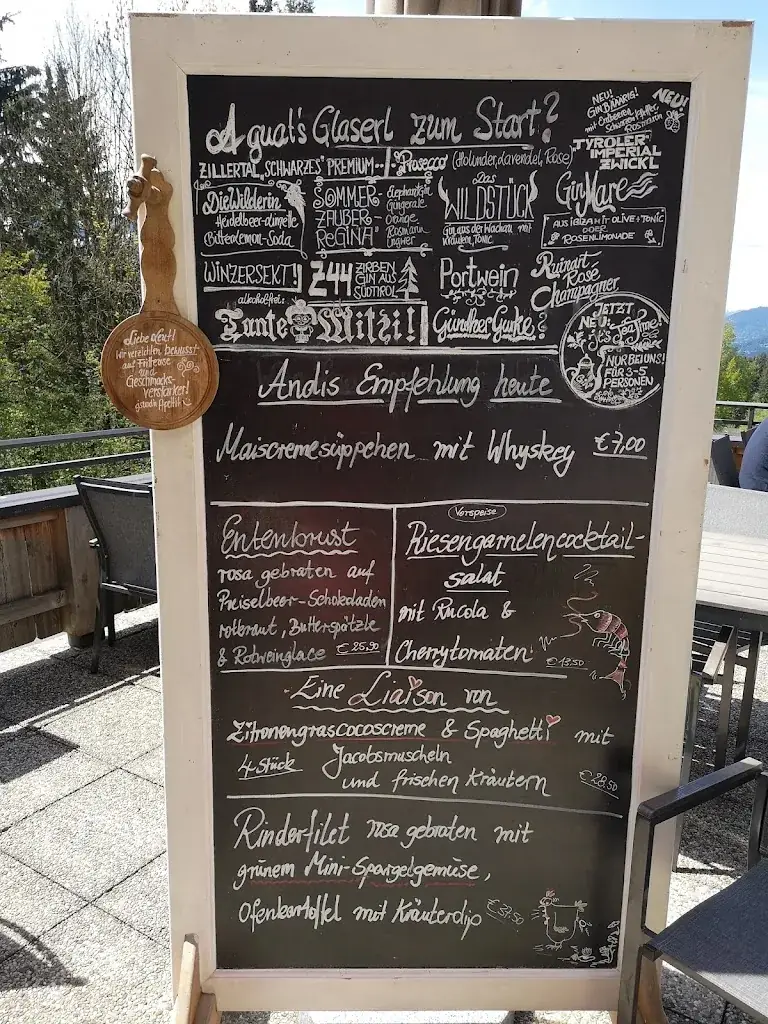 A guat's Glaserl zum Start?
NEU!
GIN BJÄÄRIG!
mit Erdbeeren,
Schwarzem Pfeffer,
Rosmarin
NEU!
ZILLERTAL „SCHWARZES" PREMIUM...
Prosecco (Holunder, Lavendel, Rose)
TYROLER
IMPERIAL
ZWICKL
Die Wilderin
Heidelbeer-Limette
Bitterlemon-Soda
SOMMER
ZAUBER
"REGINA"
Elephant Gin
Gingerale
Orange
Rosmarin
Ingwer
Das
WILDSTÜCK
Gin aus der Wachau mit
Kräutern, Tonic
Gin Mare
AUS IBIZA MIT OLIVE + TONIC
ODER
ROSENLIMONADE
WINZERSEKT!
Z44
ZIRBEN
GIN AUS
SÜDTIROL
Portwein
Ruinart
Rosé
Champagner
alkoholfrei:
Tante Mitzi!
Günther Gurke?
JETZT
NEU:
NUR BEI UNS!
FÜR 3-5
PERSONEN
Liebe Leut!
Wir verzichten bewusst
auf Friteuse
und
Geschmacks-
verstärker!
Andis Empfehlung heute
Maiscremesüppchen mit Whyskey €7,00
Entenbrust
rosa gebraten auf
Preiselbeer-Schokoladen
rotkraut, Butterspätzle
& Rotweinglace €25,90
Vorspeise
Riesengarnelencocktail-
salat
mit Rucola &
Cherrytomaten €13,50
Eine Liaison von
Zitronengrascocoscreme & Spaghetti mit
4 Stück Jacobsmuscheln
und frischen Kräutern €28,50
Rinderfilet rosa gebraten mit
grünem Mini-Spargelgemüse,
Ofenkartoffel mit Kräuterdip €37,50